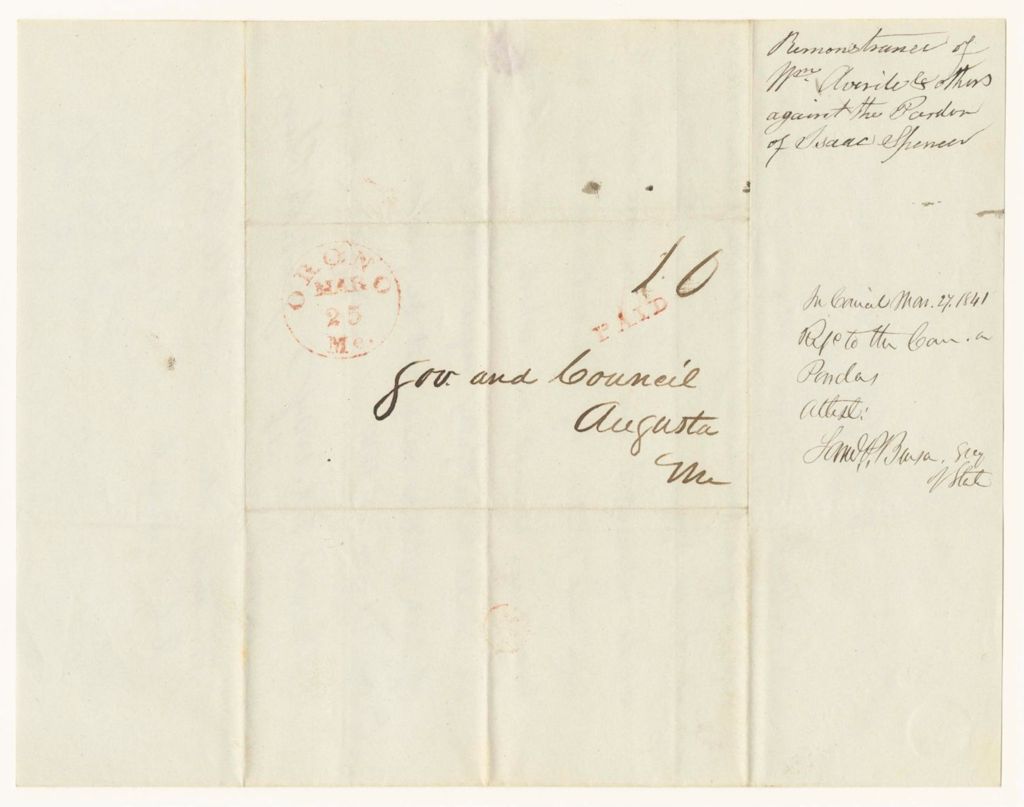 Remonstrance of
Wm. Averile & others
against the Pardon
of Isaac Spencer
ORONO
MAR
25
Me.
10
PAID
Gov. and Council
Augusta
Me
In Council Mar. 27. 1841
to the Com. on
Pardons
Attest:
Secy
of State